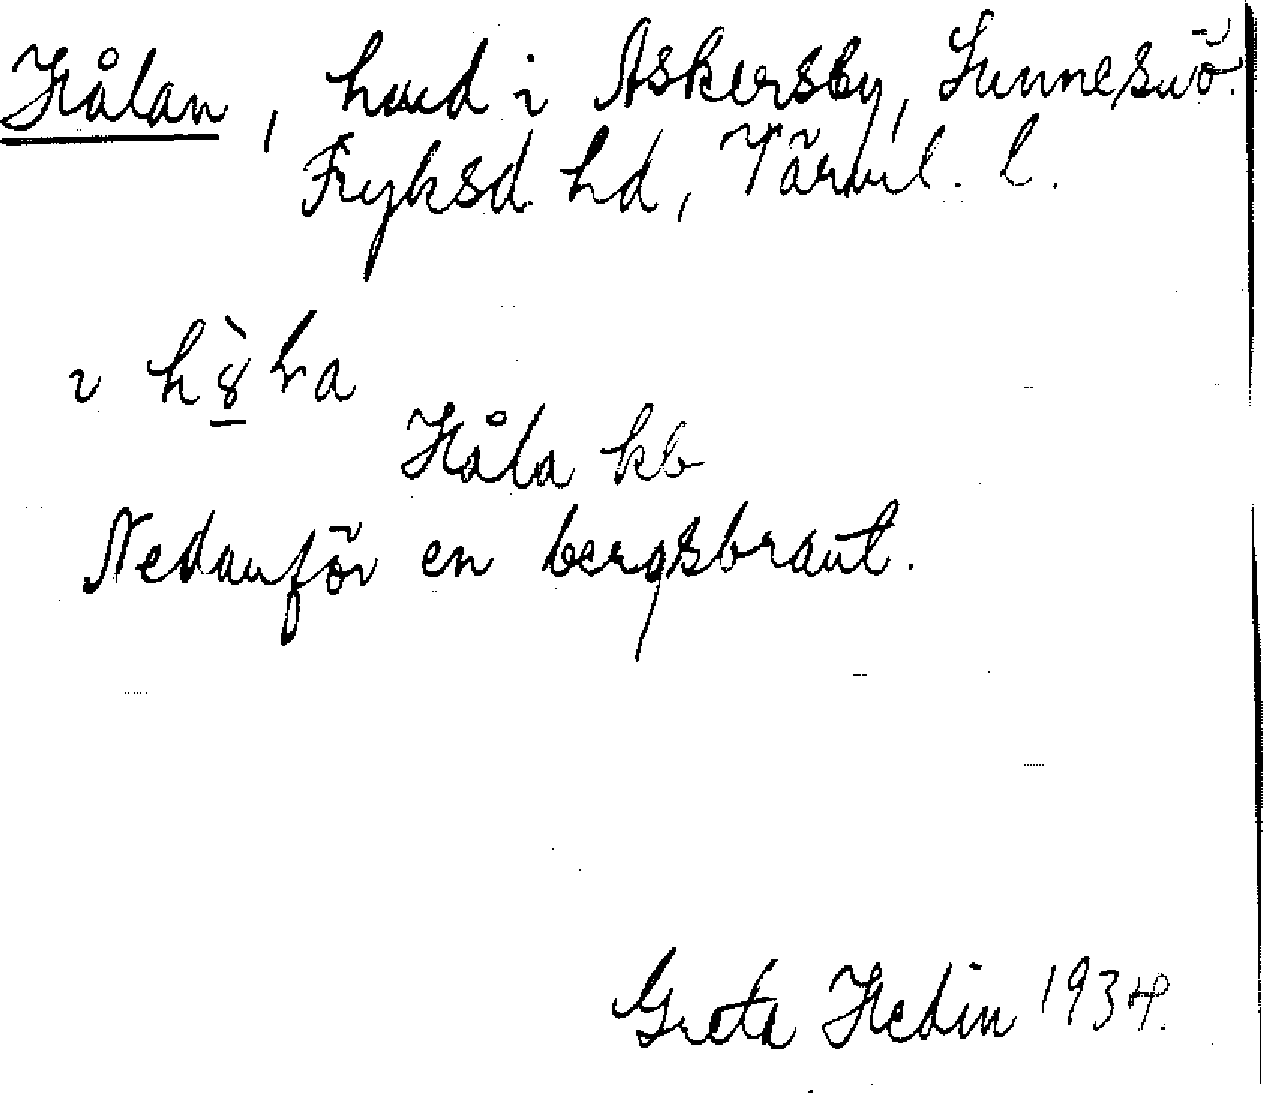 Hålan, hmd i Askersby, Sunne sn ö.
Fryksd. hd, Värml. l.
Håla kb
Nedanför en bergsbrant.
Greta Hedin 1934.